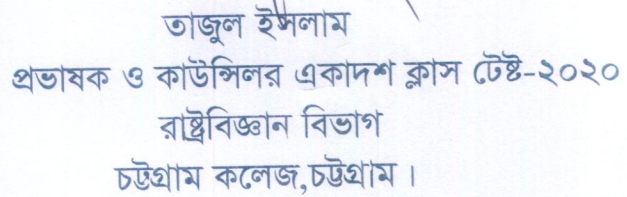 তাজুল ইসলাম
প্রভাষক ও কাউন্সিলর একাদশ ক্লাস টেষ্ট-২০২০
রাষ্ট্রবিজ্ঞান বিভাগ
চট্টগ্রাম কলেজ,চট্টগ্রাম।